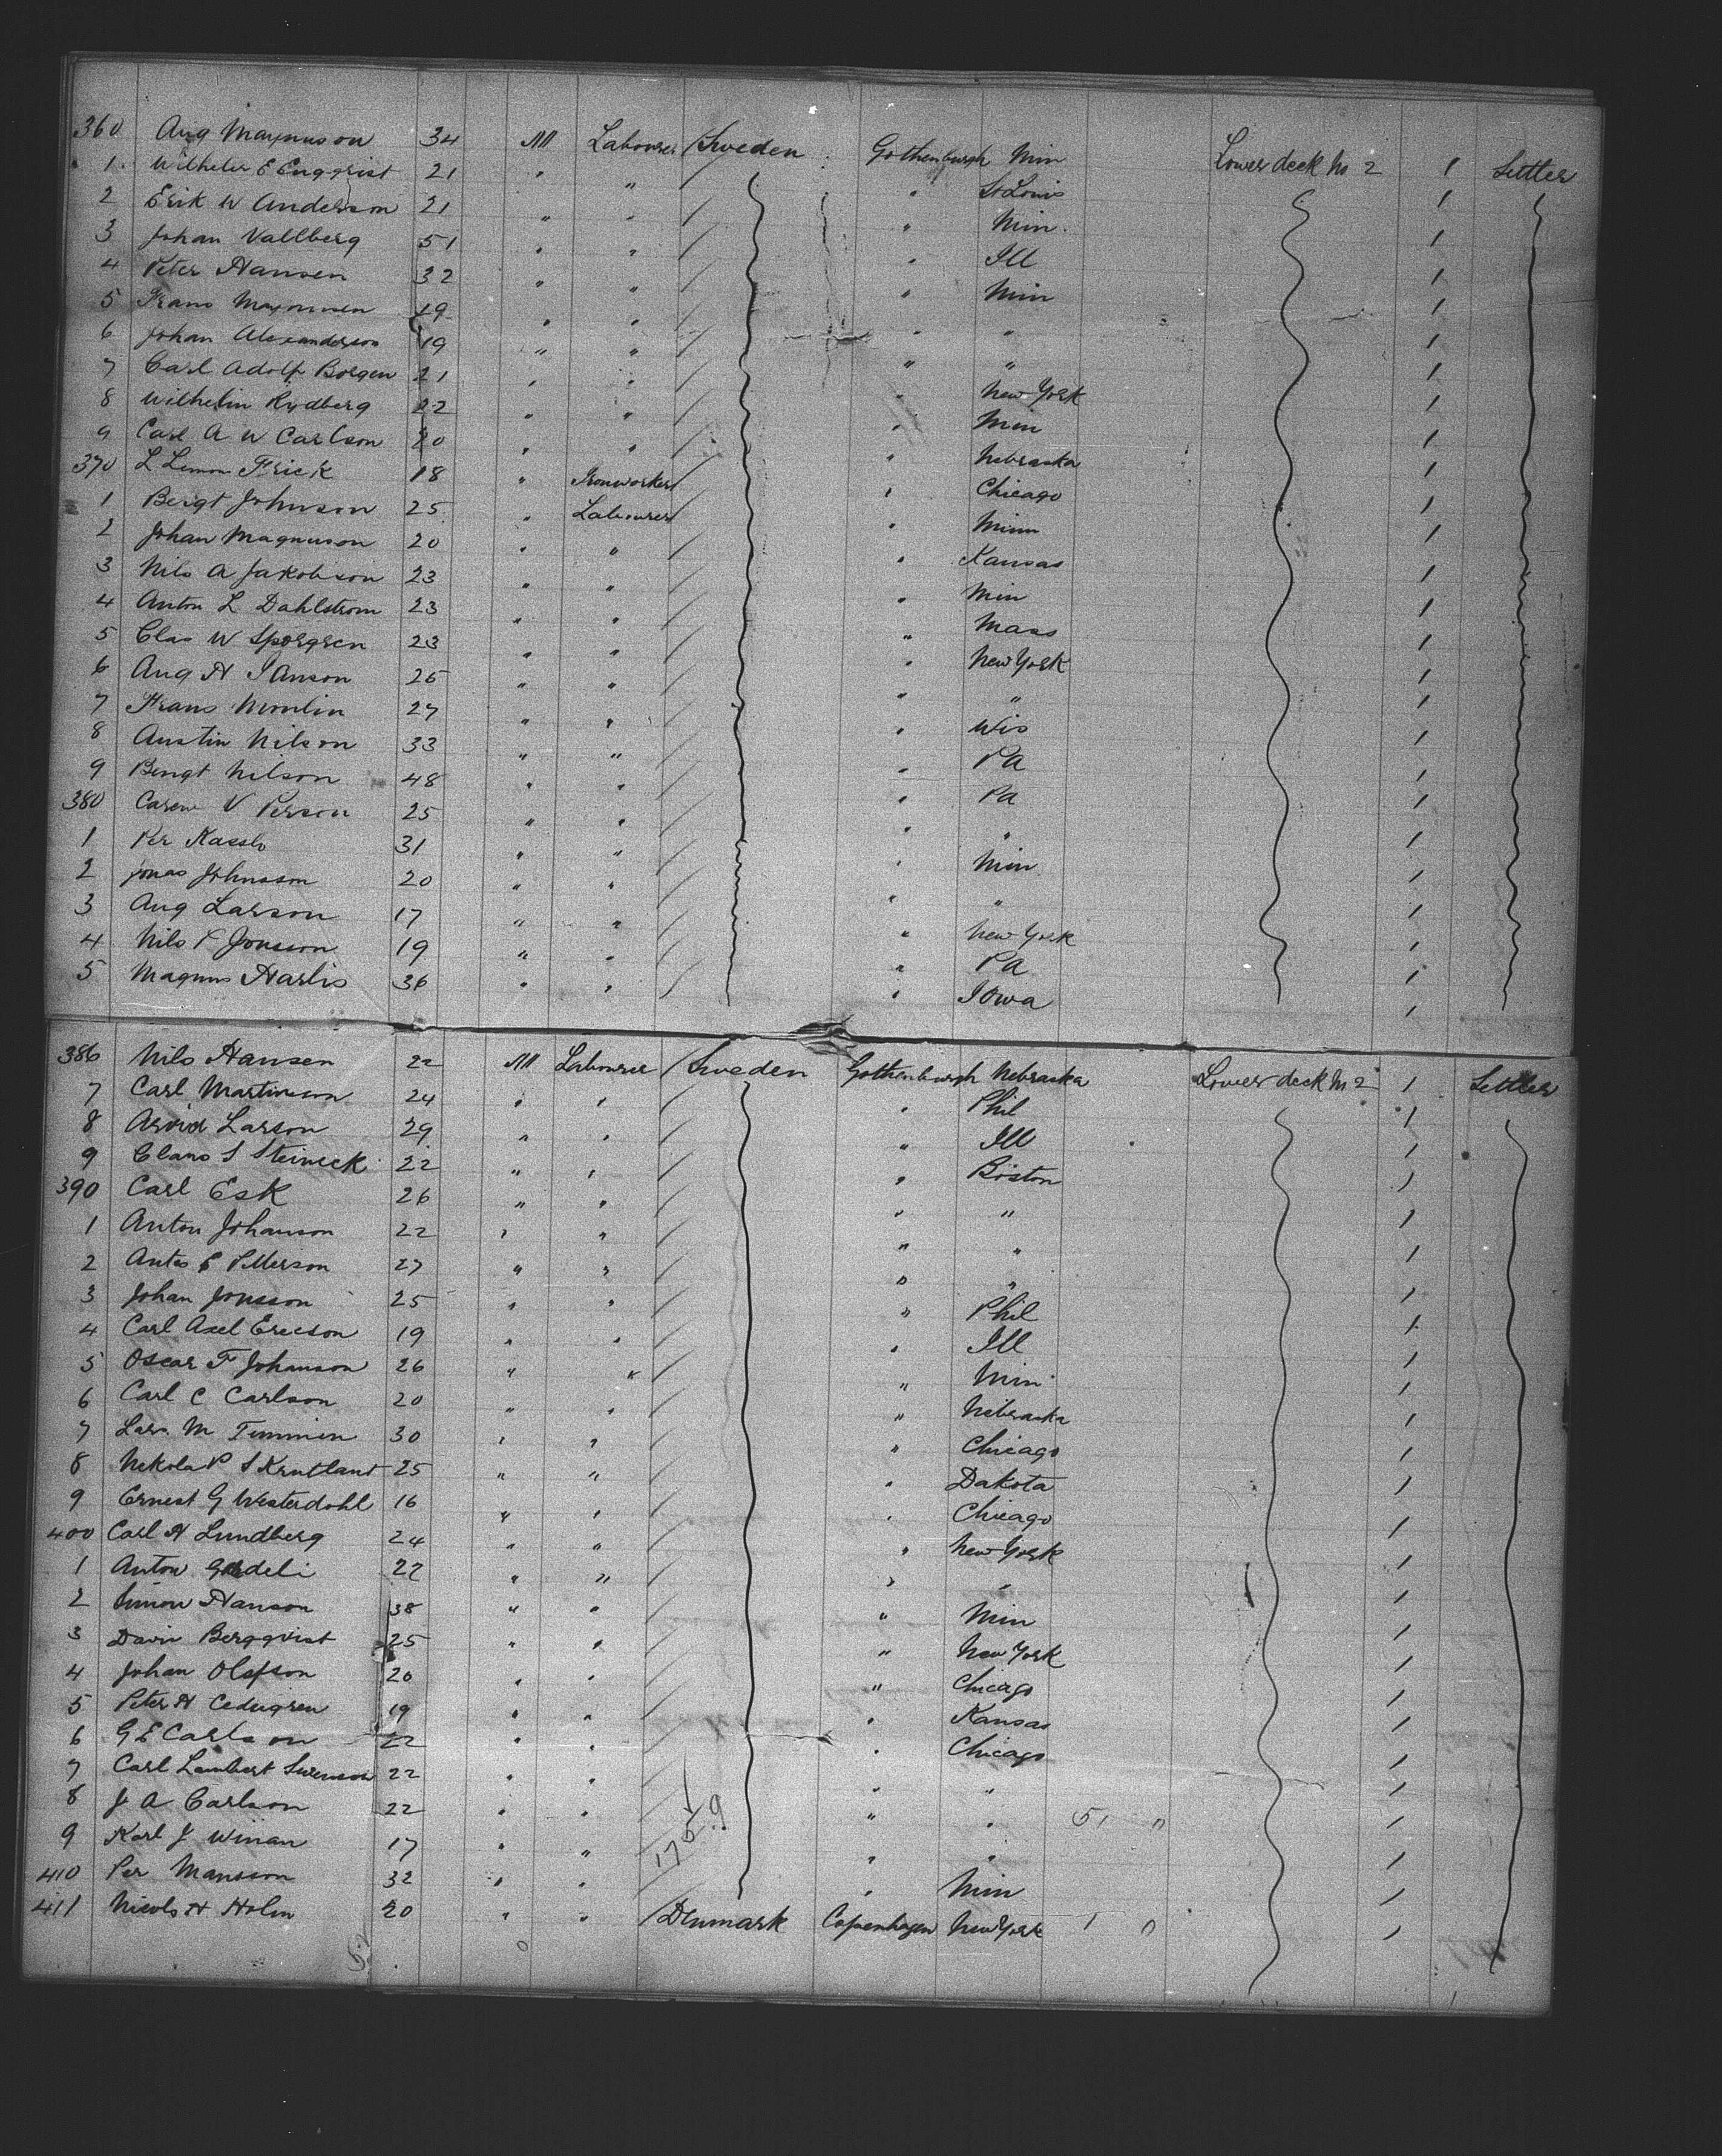 360 Aug Magnusson 34 M Labourer Sweden Gothenburgh Min Lower deck No 2 1 Settler
1 Wilhelm E Engqvist 21 " " " St Louis 1
2 Erik W Anderson 21 " " " Min 1
3 Johan Vallberg 51 " " " Ill 1
4 Peter Hansen 32 " " " Min 1
5 Frans 19 " " " " 1
6 Johan Alexanderson 19 " " " " 1
7 Carl Adolf Borgen 21 " " " New York 1
8 Wilhelm Rydberg 22 " " " Min 1
9 Carl A W Carlson 20 " " " Nebraska 1
370 L Frick 18 " Ironworker " Chicago 1
1 Bengt Johnson 25 " Labourer " Minn 1
2 Johan Magnuson 20 " " " Kansas 1
3 Nils A Jakobson 23 " " " Min 1
4 Anton L Dahlstrom 23 " " " Mass 1
5 Clas W 23 " " " New York 1
6 Aug H 25 " " " " 1
7 Frans 27 " " " Wis 1
8 Austin Nilson 33 " " " Pa 1
9 Bengt Nilson 48 " " " Pa 1
380 V Person 25 " " " " 1
1 Per 31 " " " Min 1
2 Jonas Johnsson 20 " " " " 1
3 Aug Larson 17 " " " New York 1
4 Nils P Jonsson 19 " " " Pa 1
5 Magnus 36 " " " Iowa 1
386 Nils Hansen 22 M Labourer Sweden Gothenburgh Nebraska Lower deck No 2 1 Settler
7 Carl Martinson 24 " " " Phil 1
8 Arvid Larson 29 " " " Ill 1
9 Clans S 22 " " " Boston 1
390 Carl Esk 26 " " " " 1
1 Anton Johanson 22 " " " " 1
2 27 " " " " 1
3 Johan Jonsson 25 " " " Phil 1
4 Carl Axel Ericson 19 " " " Ill 1
5 Oscar F Johanson 26 " " " Min 1
6 Carl C Carlson 20 " " " Nebraska 1
7 Lars M 30 " " " Chicago 1
8 25 " " " Dakota 1
9 Ernest G Westerdahl 16 " " " Chicago 1
400 Carl H Lundberg 24 " " " New York 1
1 Anton 22 " " " " 1
2 Simon Hanson 38 " " " Min 1
3 Bergqvist 25 " " " New York 1
4 Johan Olafson 20 " " " Chicago 1
5 Peter H Cedergren 19 " " " Kansas 1
6 G E Carlson 22 " " " Chicago 1
7 Carl Lambert Swenson 22 " " " " 1
8 J A Carlson 22 " " " " 51 " 1
9 Karl J Winan 17 " " " " 1
410 Per Mansson 32 " " " Min 1
411 H Holm 20 " " Denmark Copenhagen New York 1 " 1